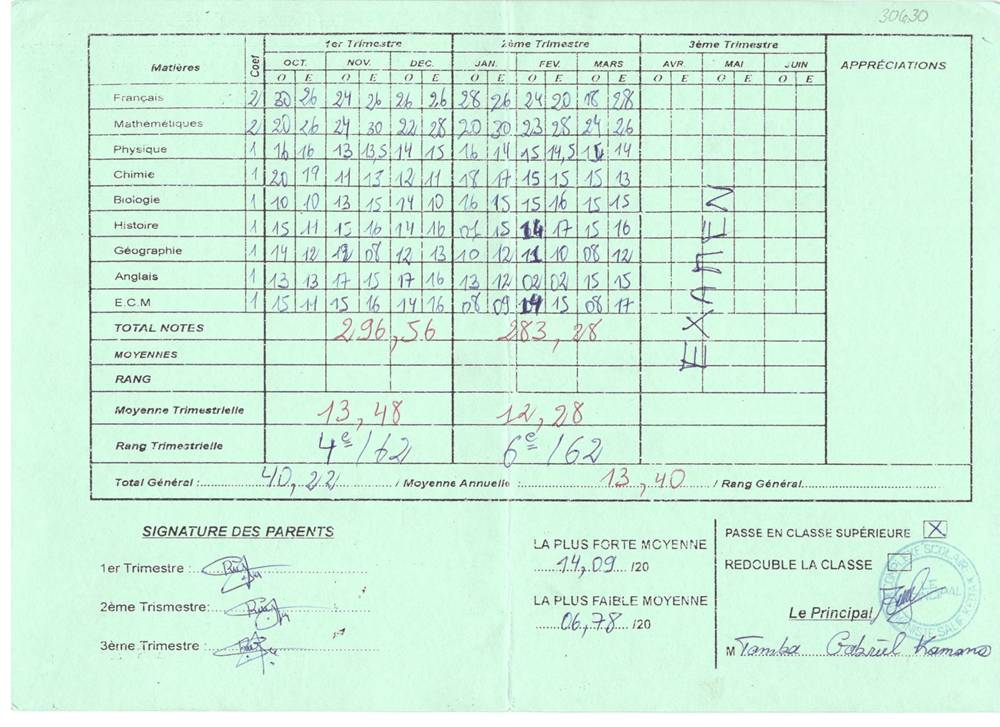 30630
1er Trimestre 2ème Trimestre 3ème Trimestre
Matières Coef OCT. NOV. DEC. JAN. FEV. MARS AVR. MAI JUIN APPRÉCIATIONS
O E O E O E O E O E O E O E O E O E
Français 2 30 26 24 26 26 26 28 26 24 20 18 28
Mathémétiques 2 20 26 24 30 22 28 20 30 23 28 24 26
Physique 1 16 16 13 13,5 14 15 16 14 15 14,5 14
Chimie 1 20 19 11 13 12 11 18 17 15 15 15 13
Biologie 1 10 10 13 15 14 10 16 15 15 16 15 15
Histoire 1 15 11 15 16 14 16 15 14 17 15 16
Géographie 1 14 12 12 08 12 13 10 12 11 10 08 12
Anglais 1 13 13 17 15 17 16 13 12 02 02 15 15
E.C.M 1 15 11 15 16 14 16 08 09 15 08 17
EXAMEN
TOTAL NOTES 296,56 283,28
MOYENNES
RANG
Moyenne Trimestrielle 13,48 12,28
Rang Trimestrielle 4e/62 6e/62
Total Général : 40,22 / Moyenne Annuelle : 13,40 / Rang Général
SIGNATURE DES PARENTS
1er Trimestre :
2ème Trismestre:
3ème Trimestre :
LA PLUS FORTE MOYENNE
14,09 /20
LA PLUS FAIBLE MOYENNE
06,78 /20
PASSE EN CLASSE SUPÉRIEURE X
REDOUBLE LA CLASSE
Le Principal
M Tamba Gabriel Kamano